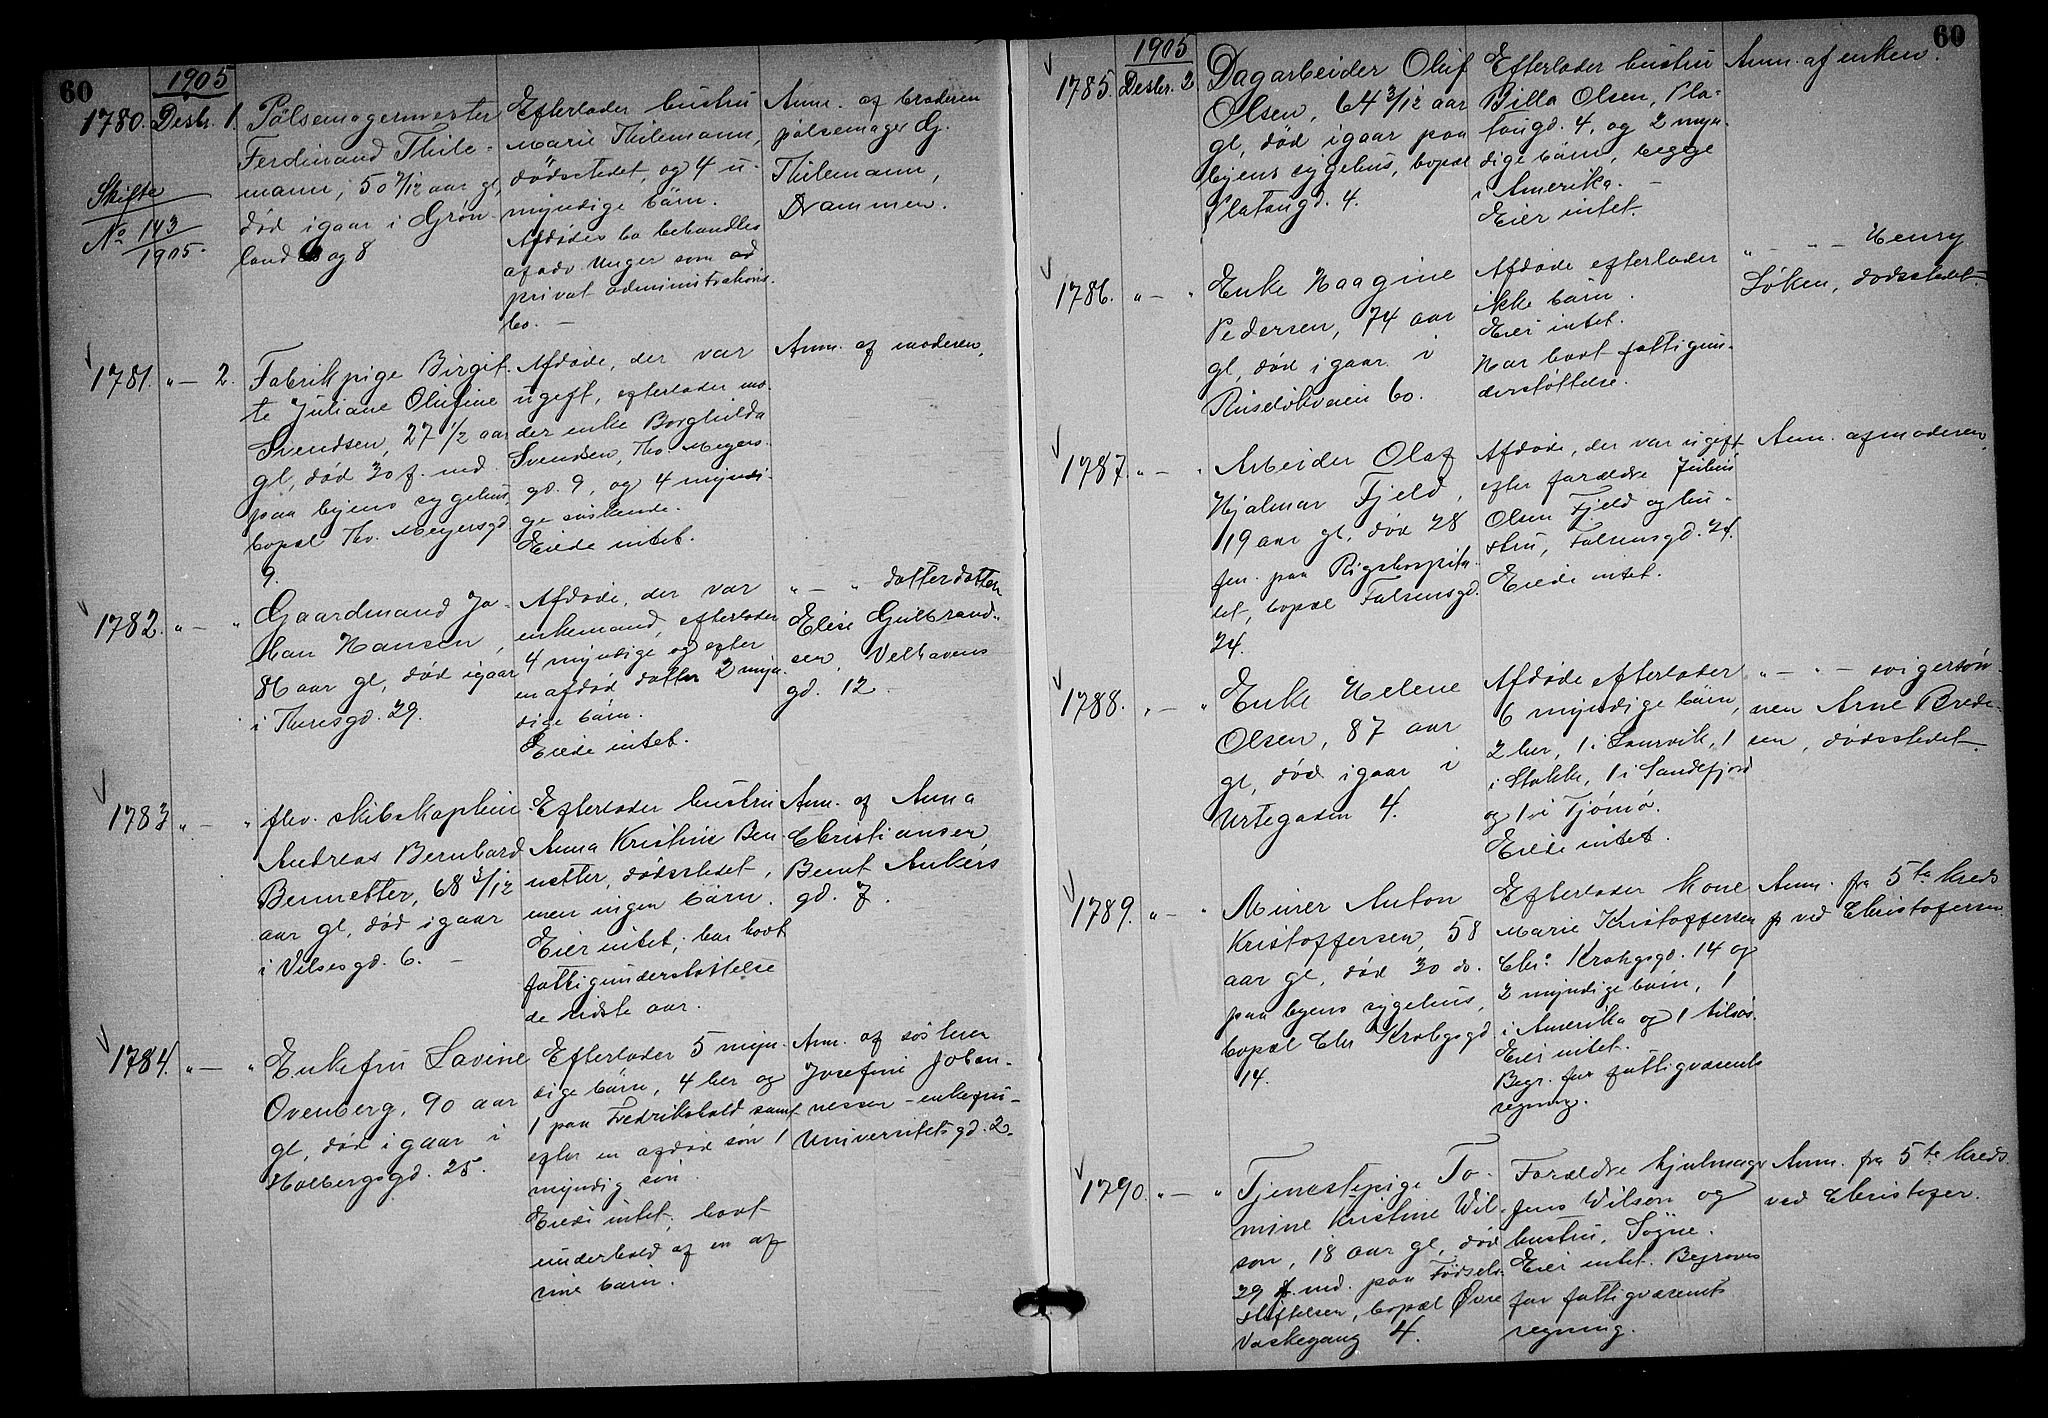 60
1905
1780. Desbr. 1.
Skifte
No 143
1905.
Pölsemagermester
Ferdinand Thile-
mann, 50 2/12 aar gl,
död igaar i Grøn
land 6 og 8
Efterlader hustru
Marie Thilemann,
dødsstedet, og 4 u-
myndige børn.
Afdødes bo behandles
af adv. Unger som
privat administrations-
bo. —
Anm. af broderen
pølsemager G.
Thilemann,
Drammen.
1781. „ — 2.
Fabrikpige Birgit-
te Juliane Olufine
Svendsen, 27 1/2 aar
gl, død 30 f. md.
paa byens sygehus,
bopæl Th. Meyersgd.
9.
Afdøde, der var
ugift, efterlader mo-
der enke Borghilda
Svendsen, Ths Meyers-
gd. 9, og 4 myndi-
ge søskende.
Eiede intet.
Anm. af moderen,
1782. „ — „
Gaardmand Jo-
han Hansen,
86 aar gl, død igaar
i Theresgd. 29.
Afdøde, der var
enkemand, efterlader
4 myndige og efter
en afdød datter 2 myn-
dige børn.
Eiede intet.
„ — „ datterdatter
Elise Gulbrand-
sen, Velhavens
gd. 12
1783 „ — „
flv. skibskaptein
Andreas Bernhard
Bennetter, 68 3/12
aar gl, død igaar
i Vibesgd. 6. —
Efterlader hustru
Anna Kristine Ben
netter, dødsstedet,
men ingen børn.
Eier intet; har havt
fattigunderstøttelse
de sidste aar.
Anm. af Anna
Christiansen,
Bernt Ankers
gd. 7.
1784. „ — „
Enkefru Lavine
Ovenberg, 90 aar
gl, død igaar i
Holbergsgd. 25.
Efterlader 5 myn-
dige børn, 4 her og
1 paa Fredrikshald samt
efter en afdød søn 1
myndig søn.
Eiede intet; havt
underhold af en af
sine børn.
Anm. af søsteren
Josefine Johan-
nessen - enkefru -
Universitetsgd. 2.
60
1905
1785. Desbr. 2
Dagarbeider Oluf
Olsen, 64 3/12 aar
gl, død igaar paa
byens sygehus, bopæl
Platougd. 4.
Efterlader hustru
Billa Olsen, Pla-
tougd. 4, og 2 myn-
dige børn, begge
i Amerika. —
Eier intet.
Anm. af enken.
1786. „ — „
Enke Haagine
Pedersen, 74 aar
gl, død igaar i
Ruseløkveien 60.
Afdøde efterlader
ikke børn.
Eier intet.
Har havt fattigun-
derstøttelse.
„ — „ — Henry
Løken, dødsstedet.
1787. „ — „
Arbeider Olaf
Hjalmar Fjeld,
19 aar gl, død 28
f.m. paa Rigshospita-
let, bopæl Falsensgd.
24.
Afdøde, der var ugift
efter forældre Julius
Olsen Fjeld og hu-
stru, Falsensgd. 24.
Eiede intet.
Anm. af moderen,
1788. „ — „
Enke Helene
Olsen, 87 aar
gl, død igaar i
Urtegaden 4.
Afdøde efterlader
6 myndige børn,
2 her, 1 i Laurvik, 1
i Stokke, 1 i Sandefjord
og 1 i Tjømø.
Eiede intet.
„ — „ — svigersøn-
nen Arne Brede-
sen, dødsstedet.
1789. „ — „
Murer Anton
Kristoffersen, 58
aar gl, død 30 do.
paa byens sygehus,
bopæl Chr Krohgsgd
14.
Efterlader kone
Marie Kristoffersen
Chr. Krohgsgd. 14 og
2 myndige børn, 1
i Amerika og 1 tilsøs.
Eier intet.
Begr. for fattigvæsenets
regning.
Anm. fra 5te kreds
p ved Christofersen
1790. „ — „
Tjenestepige To-
mine Kristine Wil-
son, 18 aar gl, død
29 f. md. paa Fødsels-
stiftelsen, bopæl Øvre
Vaskegang 4.
Forældre hjulmager
Jens Wilson og
hustru, Søgne.
Eier intet. Begraves
for fattigvæsenets
regning.
Anm. fra 5te kreds.
ved Christofer.